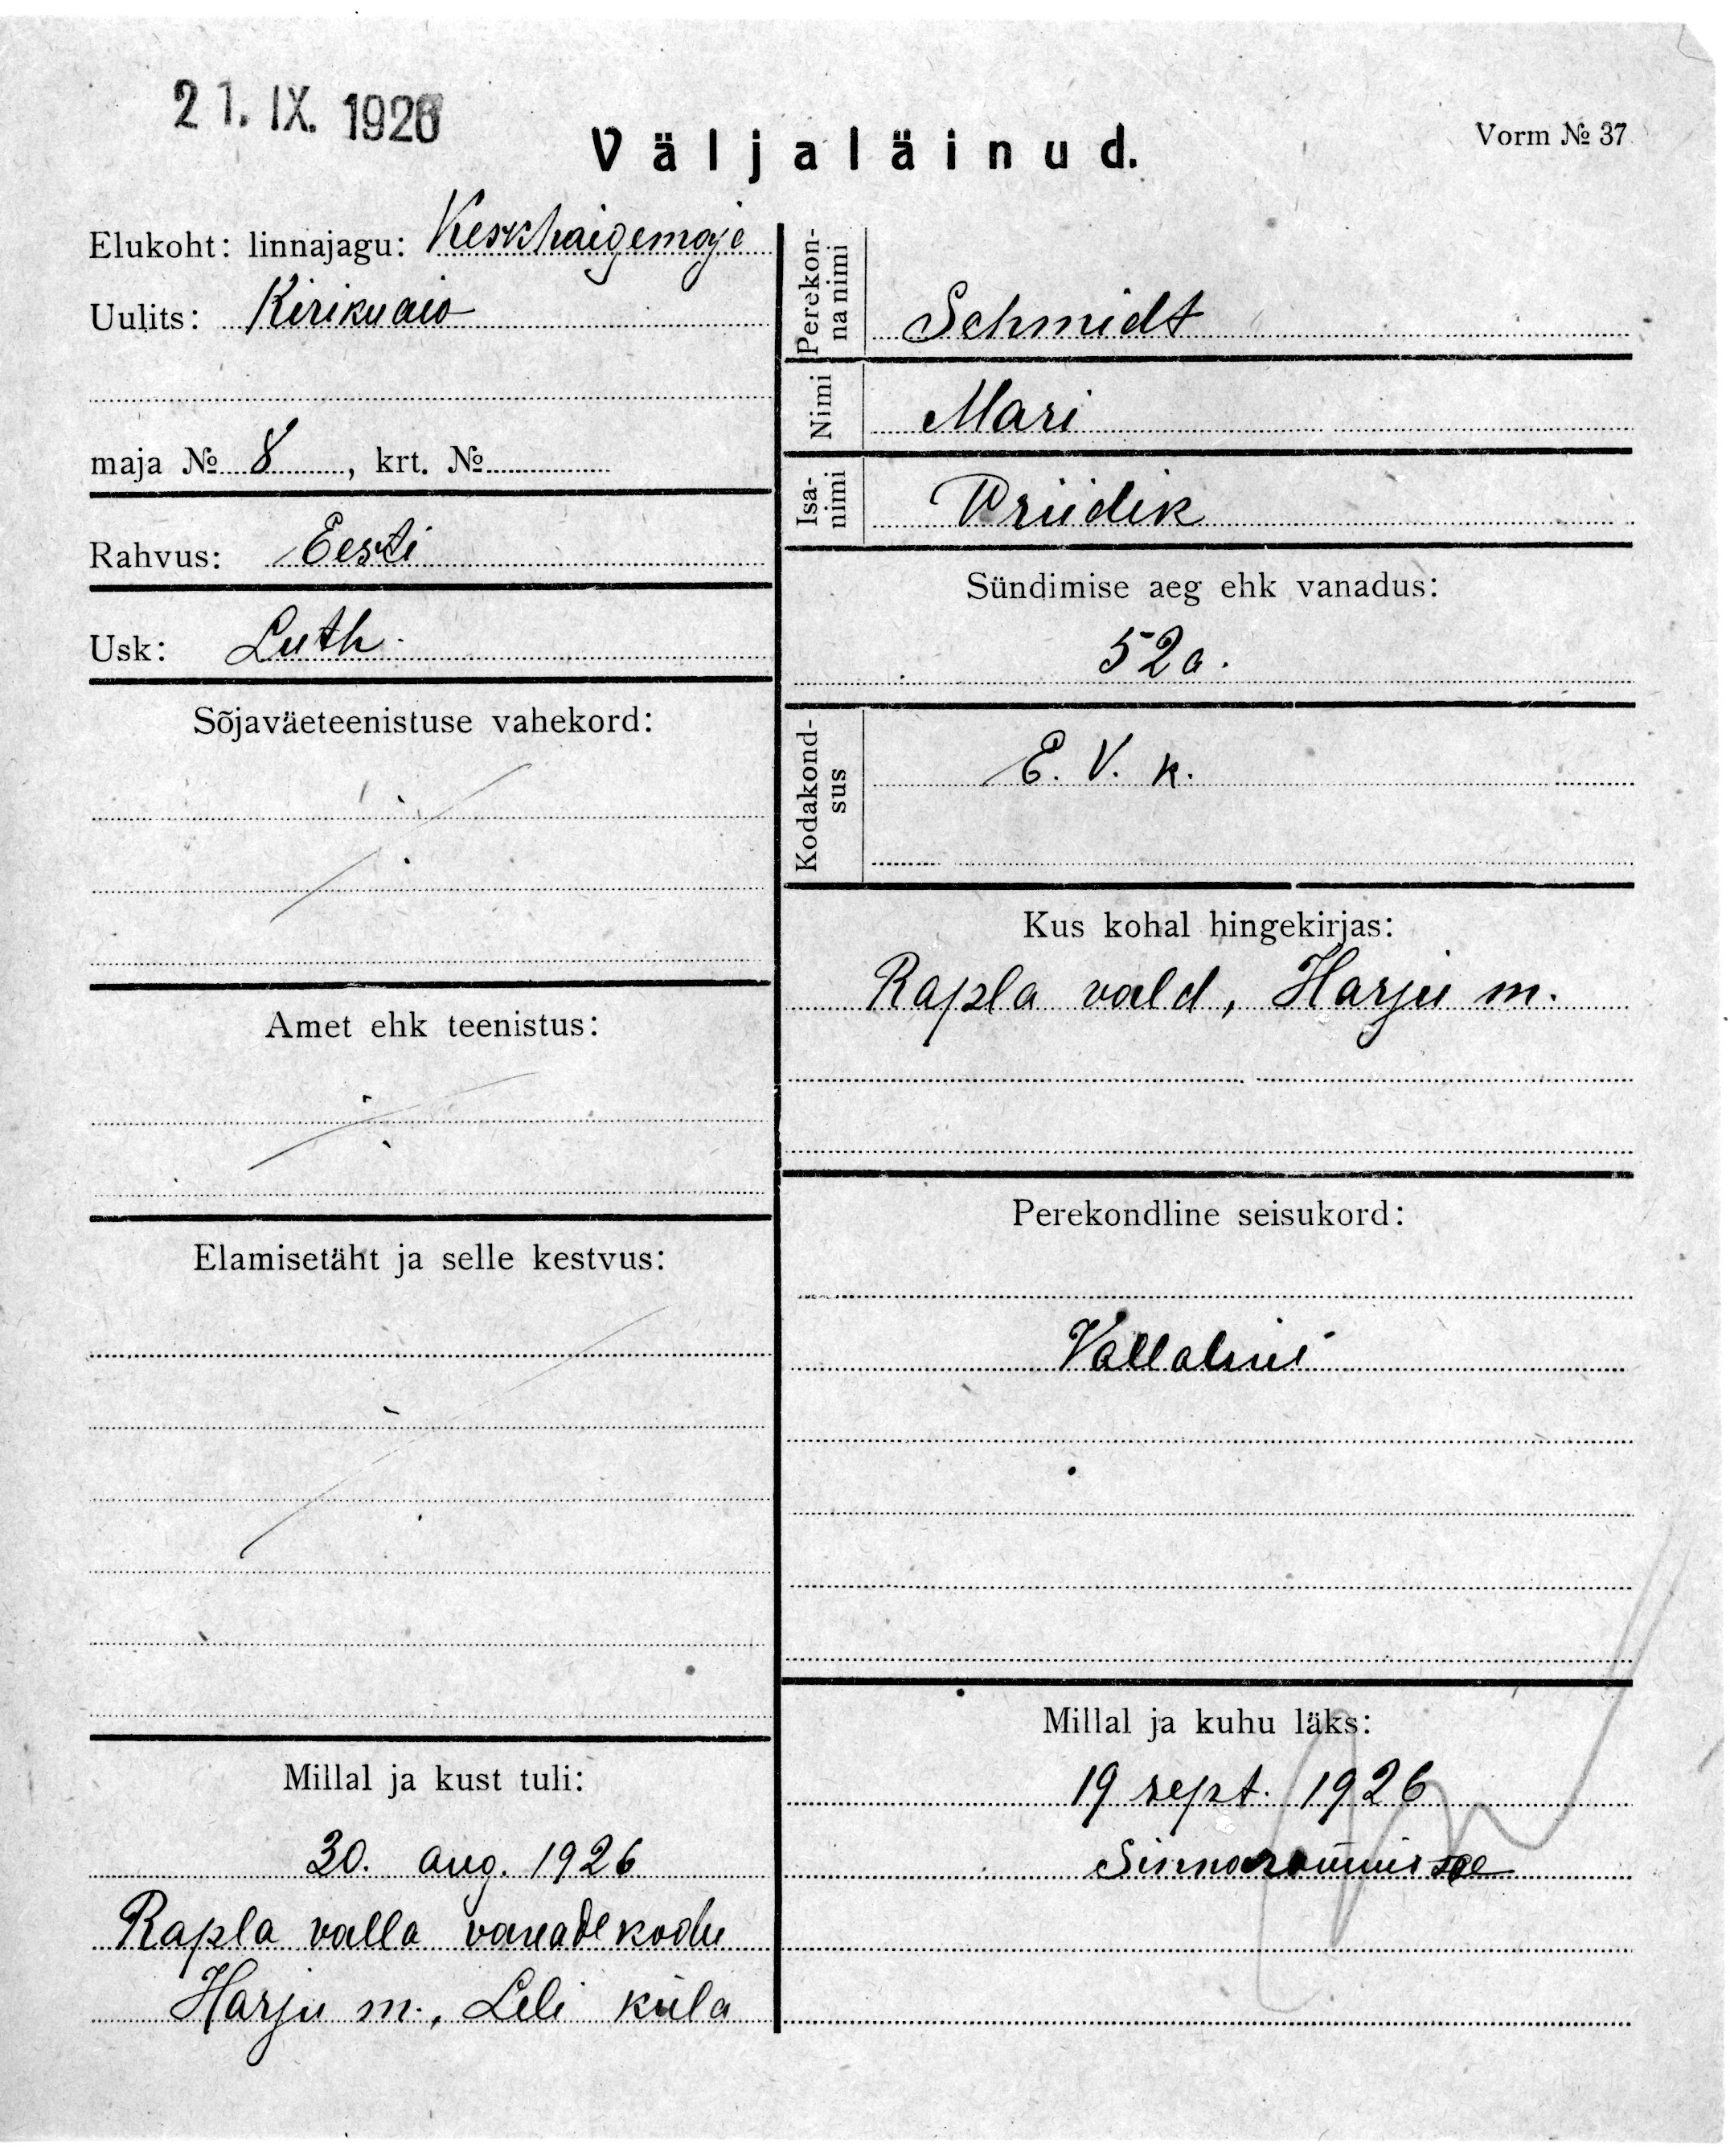 21. IX. 1926
Väljaläinud.
Vorm № 37
Elukoht: linnajagu: Keskhaigemaja
Uulits: Kirikuaio
maja № 8, krt. №
Rahvus: Eesti
Usk: Luth.
Sõjaväeteenistuse vahekord:
Amet ehk teenistus:
Elamisetäht ja selle kestvus:
Millal ja kust tuli:
30. aug. 1926
Rapla valla vanadekodu
Harju m., Leli küla
Perekon-
na nimi
Schmidt
Nimi
Mari
Isa-
nimi
Priidik
Sündimise aeg ehk vanadus:
52 a.
Kodakond-
sus
E. V. k.
Kus kohal hingekirjas:
Rapla vald, Harju m.
Perekondline seisukord:
Vallaline
Millal ja kuhu läks:
19 sept. 1926